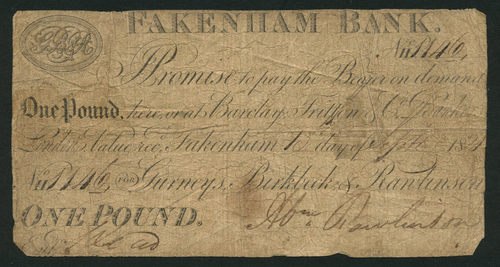 FAKENHAM BANK.
No 1746,
I Promise to pay the Bearer on demand
One Pound, here or at Barclay, Tritton, & Co. Bankers
London Value rec'd. Fakenham 1 day of Sept. 18
No 1746, FOR Gurneys, Birkbeck & Rawlinson
ONE POUND. Abm Rawlinson